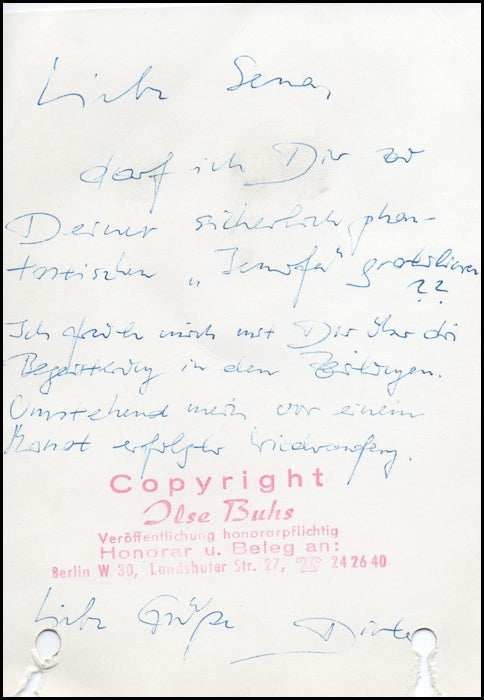 Liebe Sena,
darf ich Dir zu
Deiner sicherlich phan-
tastischen „Jenufa" gratulieren
??
Ich freue mich mit Dir über die
Begeisterung in den Zeitungen.
Umstehend mein vor einem
Monat erfolgter
Copyright
Ilse Buhs
Veröffentlichung honorarpflichtig
Honorar u. Beleg an:
Berlin W 30, Landshuter Str. 27, ☎ 24 26 40
Liebe Grüße